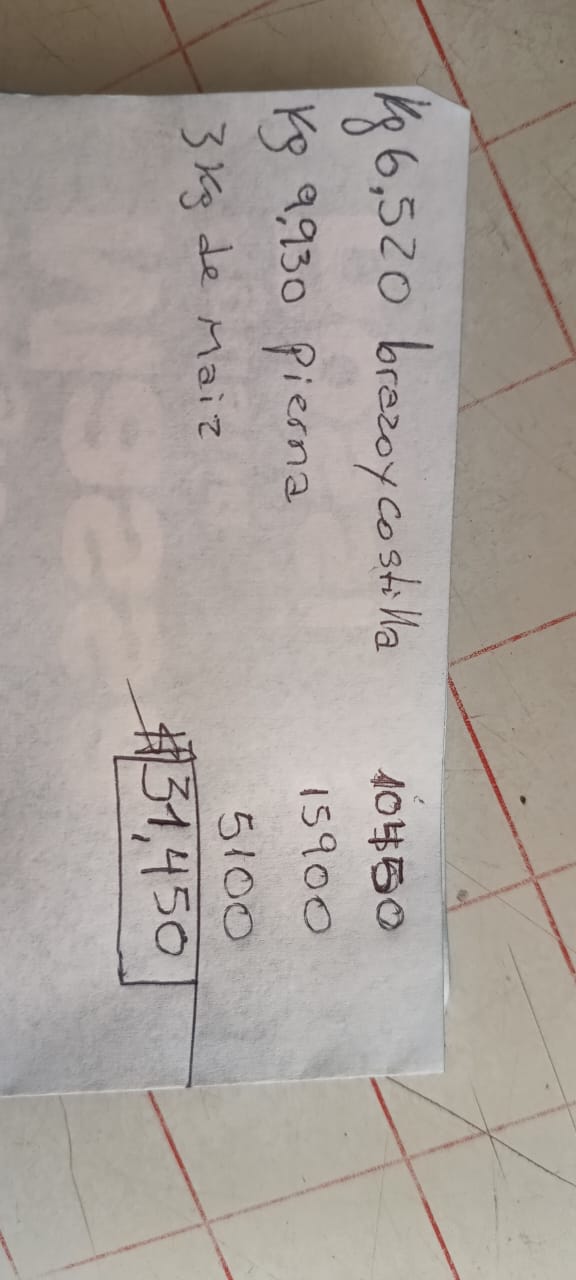 Kg 6,520 brazo y costilla 10450
Kg 9,930 Pierna 15900
3 Kg de Maiz 5100
31,450